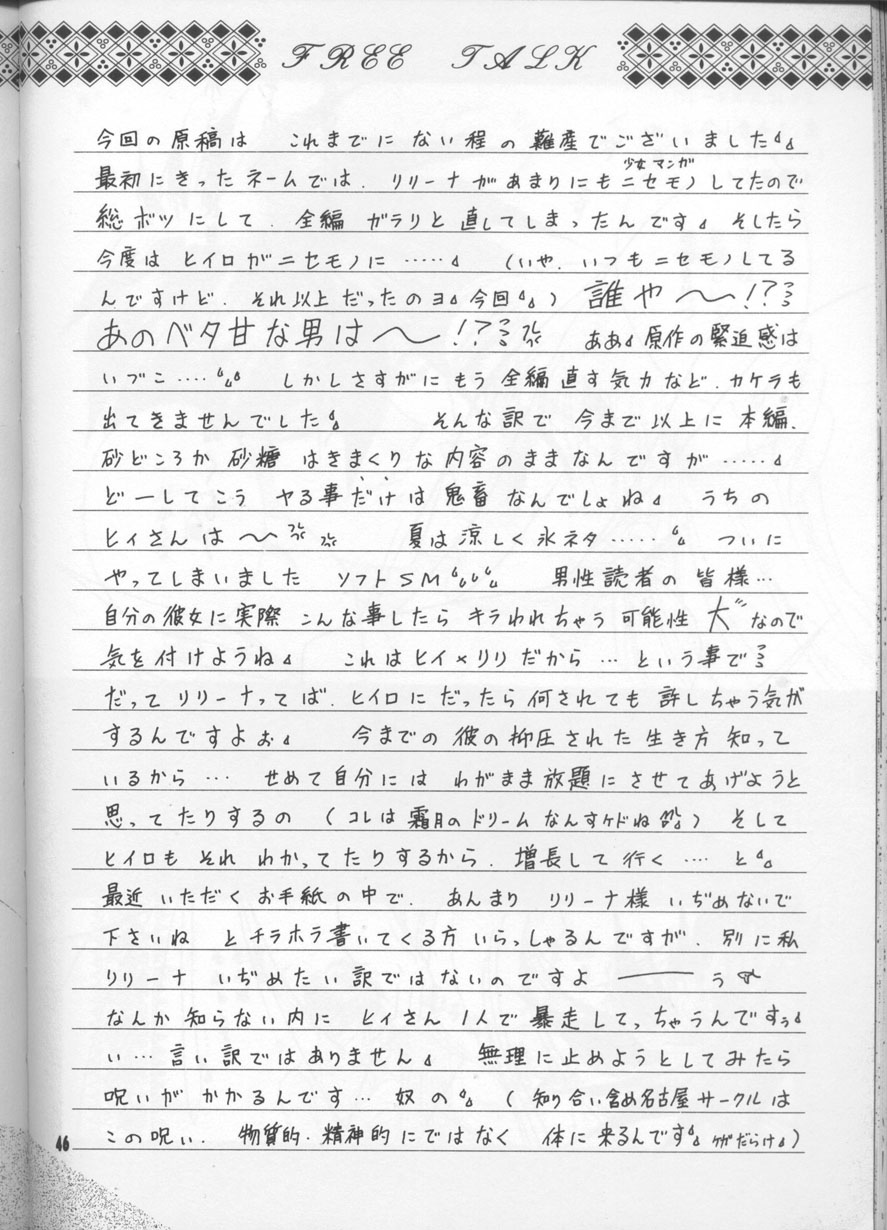 FREE TALK
今回の原稿は これまでにない程の難産でございました
最初にきったネームでは、リリーナがあまりにもニセモノしてたので
少女マンガ
総ボツにして、全編ガラリと直してしまったんです そしたら
今度はヒイロがニセモノに…… (いや、いつもニセモノしてる
んですけど、それ以上だったのヨ 今回) 誰や〜!?
あのベタ甘な男は〜!? ああ 原作の緊迫感は
いづこ…… しかしさすがにもう全編直す気力など、カケラも
出てきませんでした そんな訳で今まで以上に本編、
砂どころか砂糖はきまくりな内容のままなんですが……
どーしてこう ヤる事だけは鬼畜なんでしょね うちの
ヒイさんは〜 夏は涼しく氷ネタ…… ついに
やってしまいました ソフトSM 男性読者の皆様…
自分の彼女に実際こんな事したらキラわれちゃう可能性大なので
気を付けようね これはヒイ×リリだから…という事で
だってリリーナってば、ヒイロにだったら何されても許しちゃう気が
するんですよぉ 今までの彼の抑圧された生き方知って
いるから… せめて自分にはわがまま放題にさせてあげようと
思ってたりするの (コレは霜月のドリームなんすケドね) そして
ヒイロもそれわかってたりするから、増長して行く…と
最近いただくお手紙の中で、あんまりリリーナ様いぢめないで
下さいねとチラホラ書いてくる方いらっしゃるんですが、別に私
リリーナいぢめたい訳ではないのですよ――う
なんか知らない内に ヒイさん1人で暴走してっちゃうんですぅ
い…言い訳ではありません 無理に止めようとしてみたら
呪いがかかるんです…奴の (知り合い含め名古屋サークルは
この呪い、物質的・精神的にではなく 体に来るんです ケガだらけ)
46